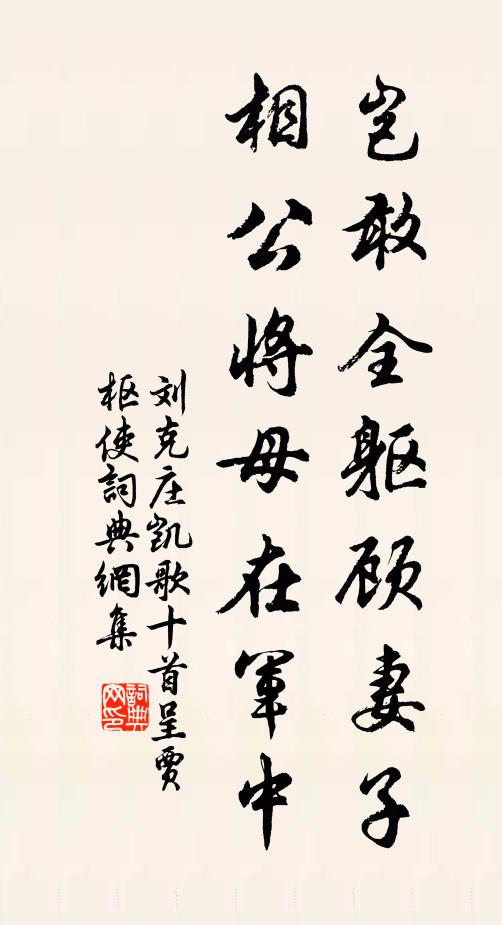 岂敢全躯顾妻子
相公将母在军中
刘克庄凯歌十首呈贾
枢使詞典網集
詞典网印